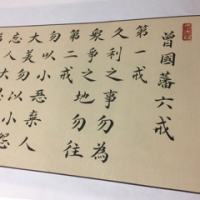 曾國藩六戒
第一戒
久利之事勿為
眾爭之地勿往
第二戒
勿以小惡棄人
大美勿以小怨
忘人大恩